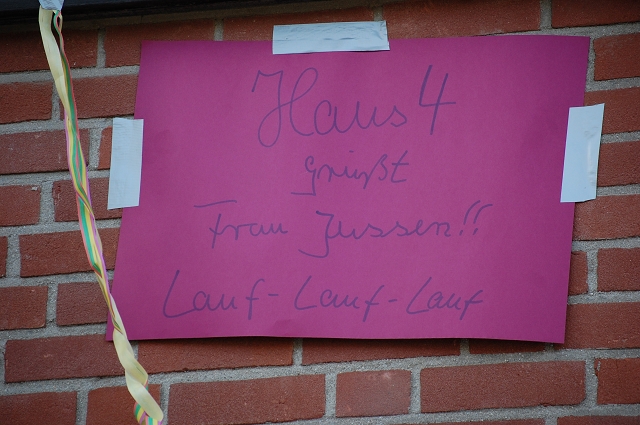 Haus 4
grüßt
Frau Jussen!!
Lauf-Lauf-Lauf